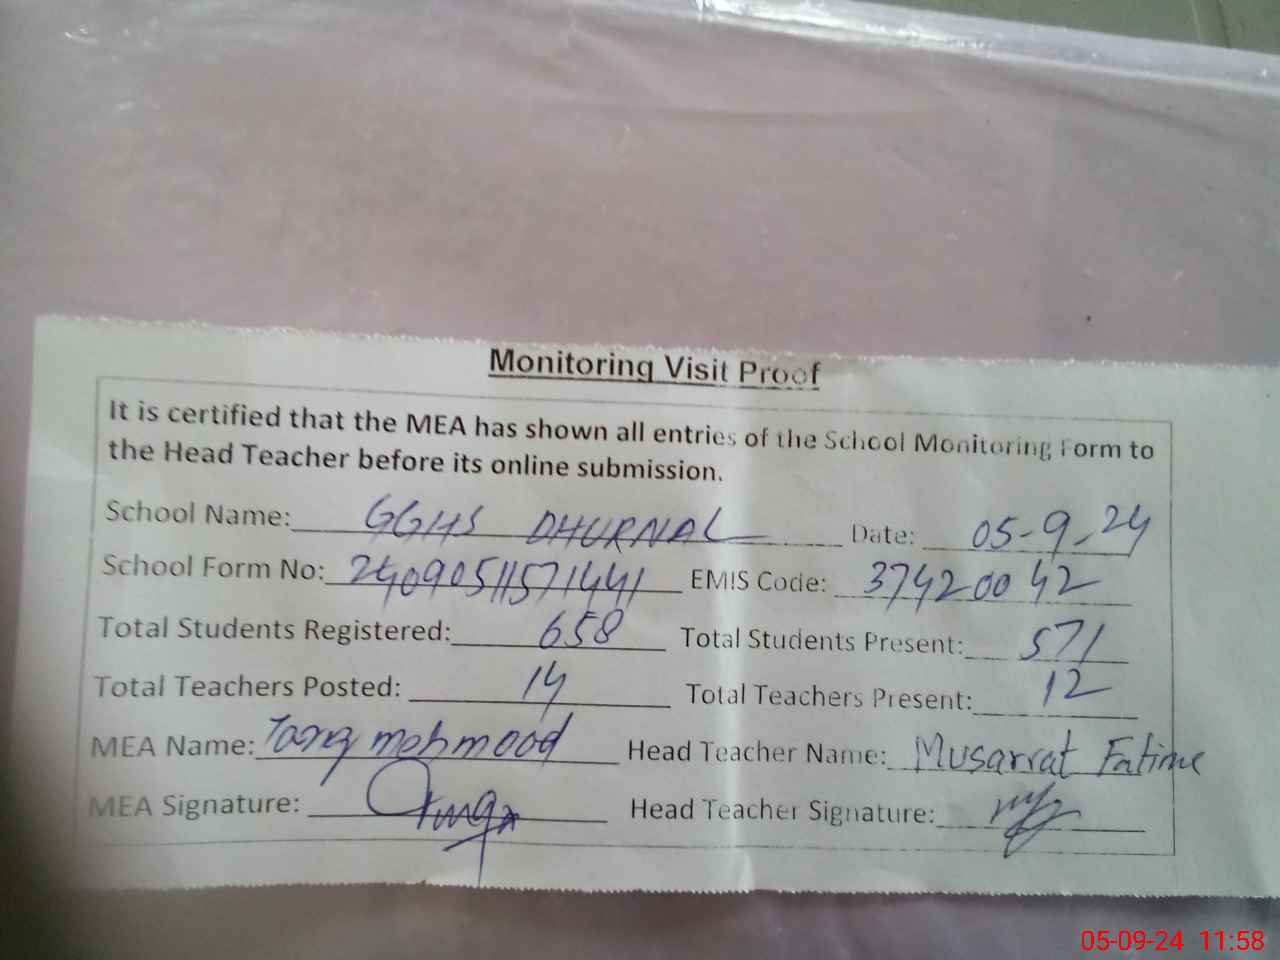 Monitoring Visit Proof
It is certified that the MEA has shown all entries of the School Monitoring Form to
the Head Teacher before its online submission.
School Name: GGHS DHURNAL Date: 05-9-24
School Form No: 24090511571441 EMIS Code: 37420042
Total Students Registered: 658 Total Students Present: 571
Total Teachers Posted: 14 Total Teachers Present: 12
MEA Name: Tariq mehmood Head Teacher Name: Musarrat Fatime
MEA Signature: Head Teacher Signature:
05-09-24 11:58